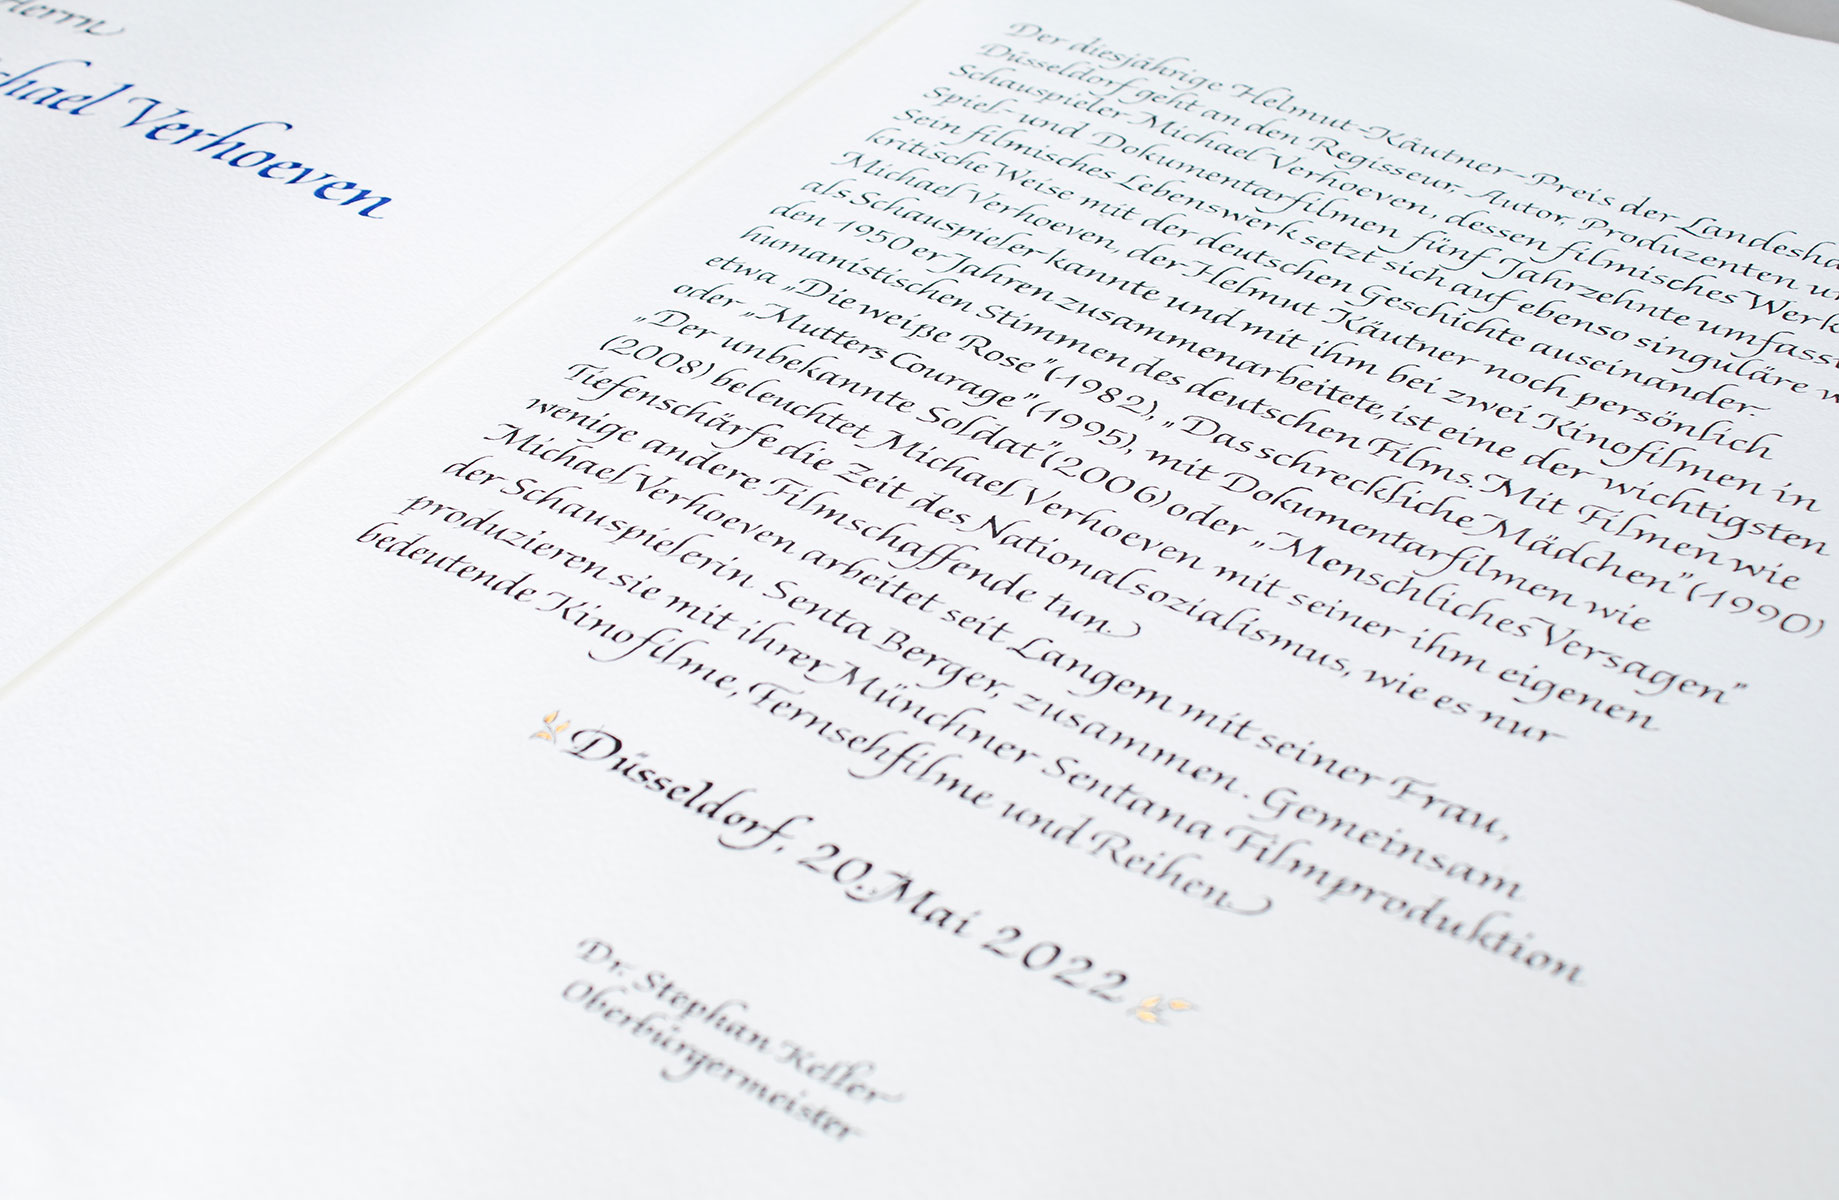 Herrn
chael Verhoeven
Der diesjährige Helmut-Käutner-Preis der Landesha
Düsseldorf geht an den Regisseur, Autor, Produzenten un
Schauspieler Michael Verhoeven, dessen filmisches Werk
Spiel- und Dokumentarfilmen fünf Jahrzehnte umfasst
Sein filmisches Lebenswerk setzt sich auf ebenso singuläre w
kritische Weise mit der deutschen Geschichte auseinander.
Michael Verhoeven, der Helmut Käutner noch persönlich
als Schauspieler kannte und mit ihm bei zwei Kinofilmen in
den 1950er Jahren zusammenarbeitete, ist eine der wichtigsten
humanistischen Stimmen des deutschen Films. Mit Filmen wie
etwa „Die weiße Rose” (1982), „Das schreckliche Mädchen” (1990)
oder „Mutters Courage” (1995), mit Dokumentarfilmen wie
„Der unbekannte Soldat” (2006) oder „Menschliches Versagen”
(2008) beleuchtet Michael Verhoeven mit seiner ihm eigenen
Tiefenschärfe die Zeit des Nationalsozialismus, wie es nur
wenige andere Filmschaffende tun.
Michael Verhoeven arbeitet seit Langem mit seiner Frau,
der Schauspielerin Senta Berger, zusammen. Gemeinsam
produzieren sie mit ihrer Münchner Sentana Filmproduktion
bedeutende Kinofilme, Fernsehfilme und Reihen.
Düsseldorf, 20. Mai 2022
Dr. Stephan Keller
Oberbürgermeister